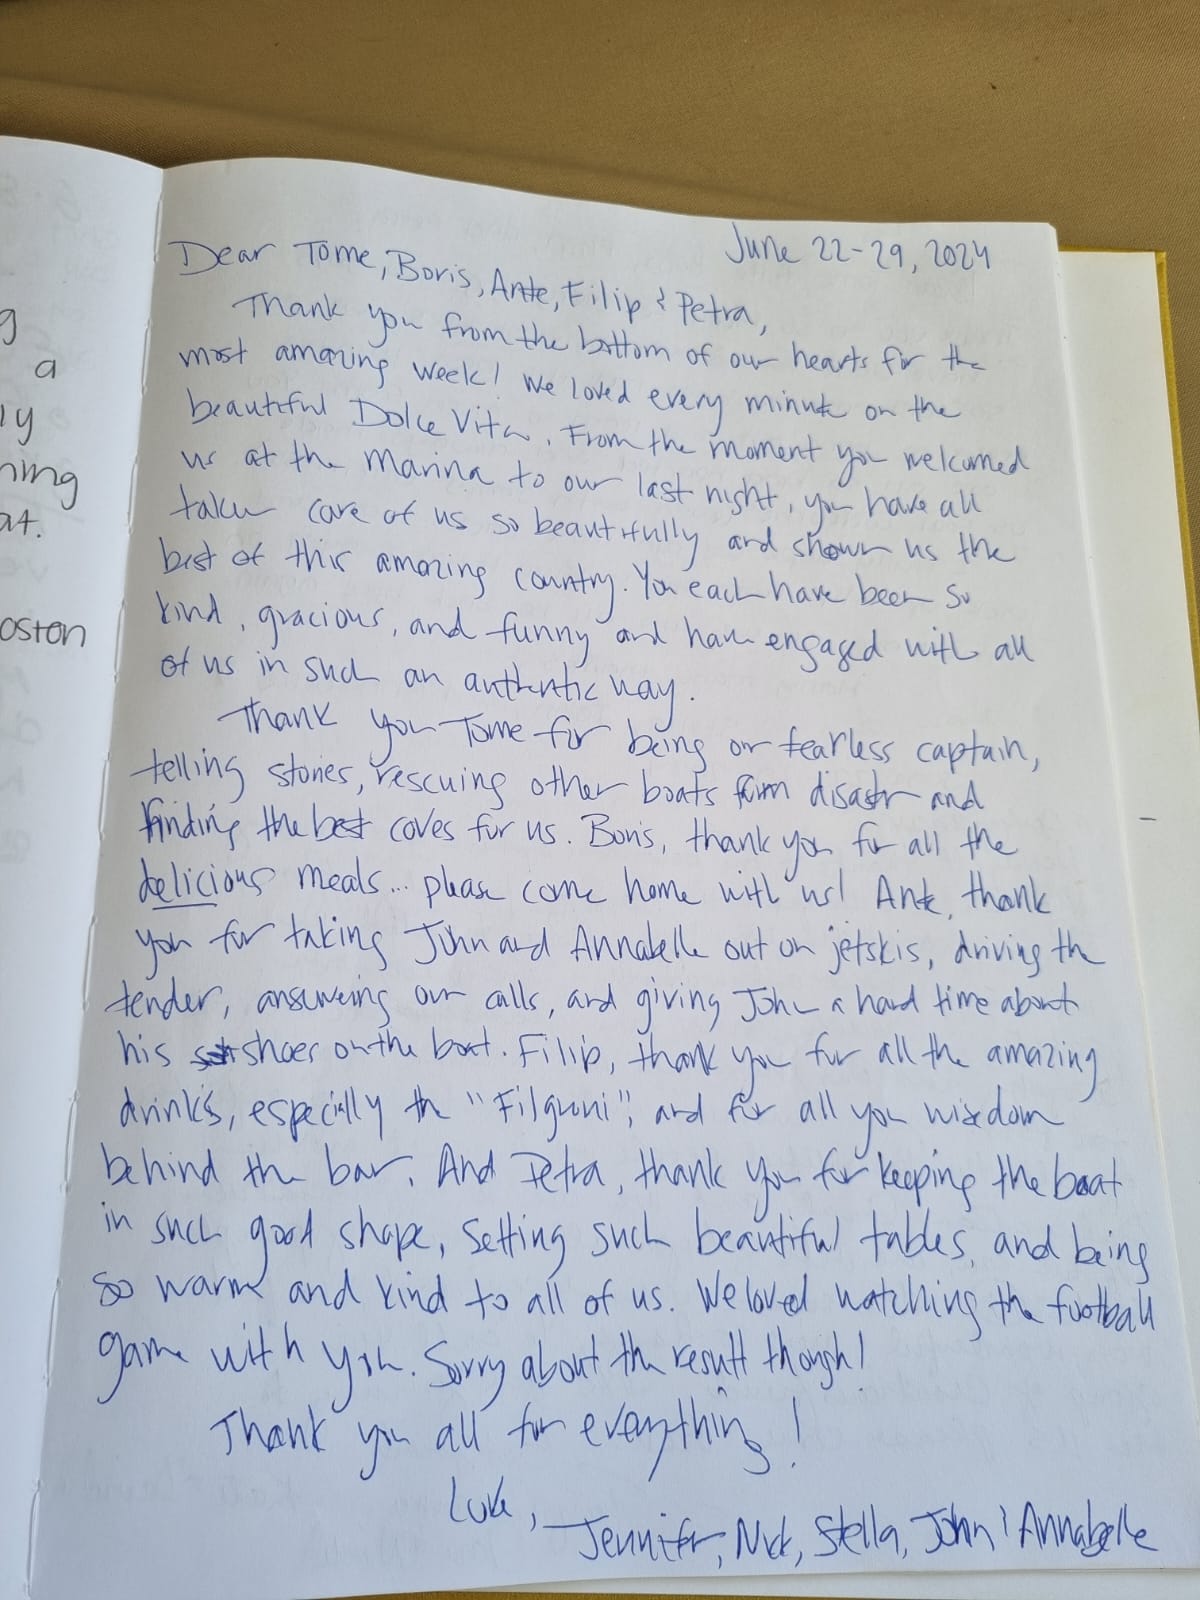 g
a
ly
ning
at.
oston
June 22-29, 2024
Dear Tome, Boris, Ante, Filip & Petra,
Thank you from the bottom of our hearts for the
most amazing week! We loved every minute on the
beautiful Dolce Vita. From the moment you welcomed
us at the marina to our last night, you have all
taken care of us so beautifully and shown us the
best of this amazing country. You each have been so
kind, gracious, and funny and have engaged with all
of us in such an authentic way.
Thank you Tome for being our fearless captain,
telling stories, rescuing other boats from disaster and
finding the best coves for us. Boris, thank you for all the
delicious meals... please come home with us! Ante, thank
you for taking John and Annabelle out on jetskis, driving the
tender, answering our calls, and giving John a hard time about
his shoes on the boat. Filip, thank you for all the amazing
drinks, especially the "Filgroni", and for all you wisdom
behind the bar. And Petra, thank you for keeping the boat
in such good shape, setting such beautiful tables, and being
so warm and kind to all of us. We loved watching the football
game with you. Sorry about the result though!
Thank you all for everything!
Love,
Jennifer, Nick, Stella, John & Annabelle